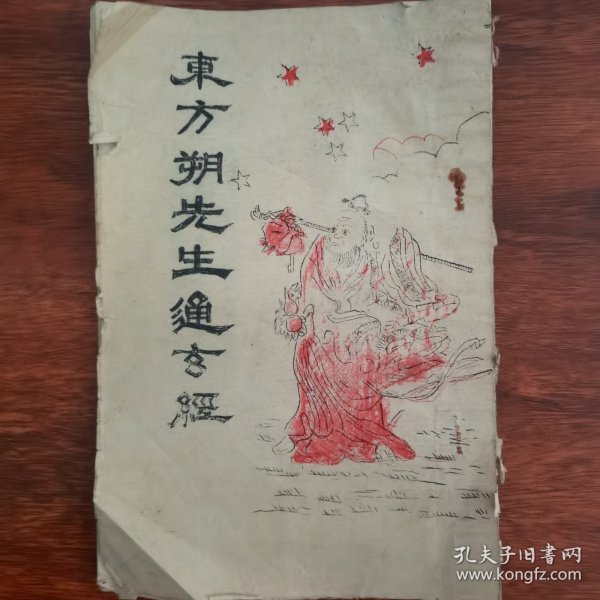 東方朔先生通玄經
孔夫子旧书网
www.kongfz.com